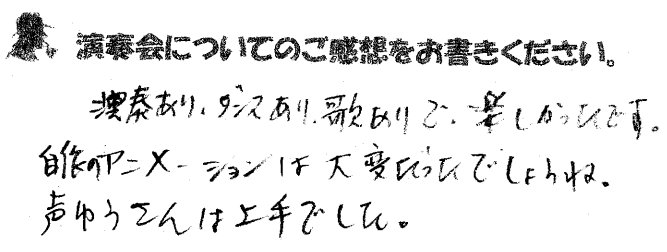 演奏会についてのご感想をお書きください。
演奏あり、ダンスあり、歌ありで、楽しかったです。
自作のアニメーションは大変だったでしょうね。
声ゆうさんは上手でした。